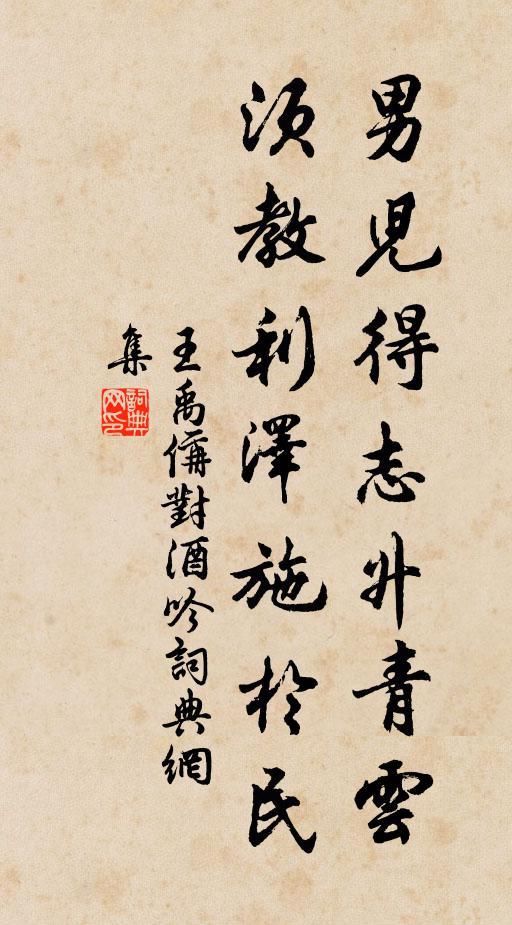 男兒得志升青雲
須教利澤施於民
王禹偁對酒吟詞典網
集
詞典
网印